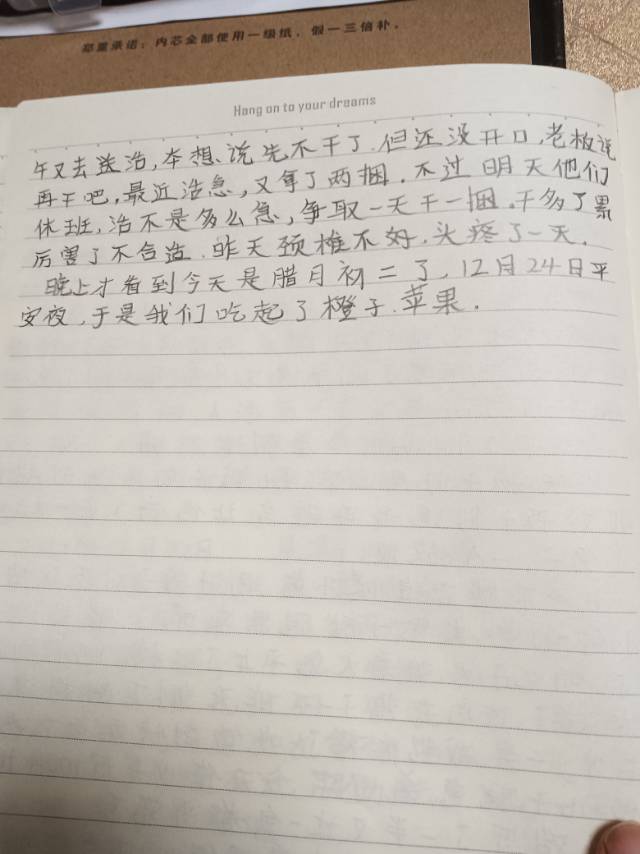 郑重承诺：内芯全部使用一级纸，假一三倍补。
Hang on to your dreams
午又去送活，本想说先不干了.但还没开口，老板说
再干吧，最近活急，又拿了两捆.不过明天他们
休班，活不是多么急，争取一天干一捆.干多了累
厉害了不合适.昨天颈椎不好，头疼了一天.
晚上才看到今天是腊月初二了，12月24日平
安夜，于是我们吃起了橙子.苹果.